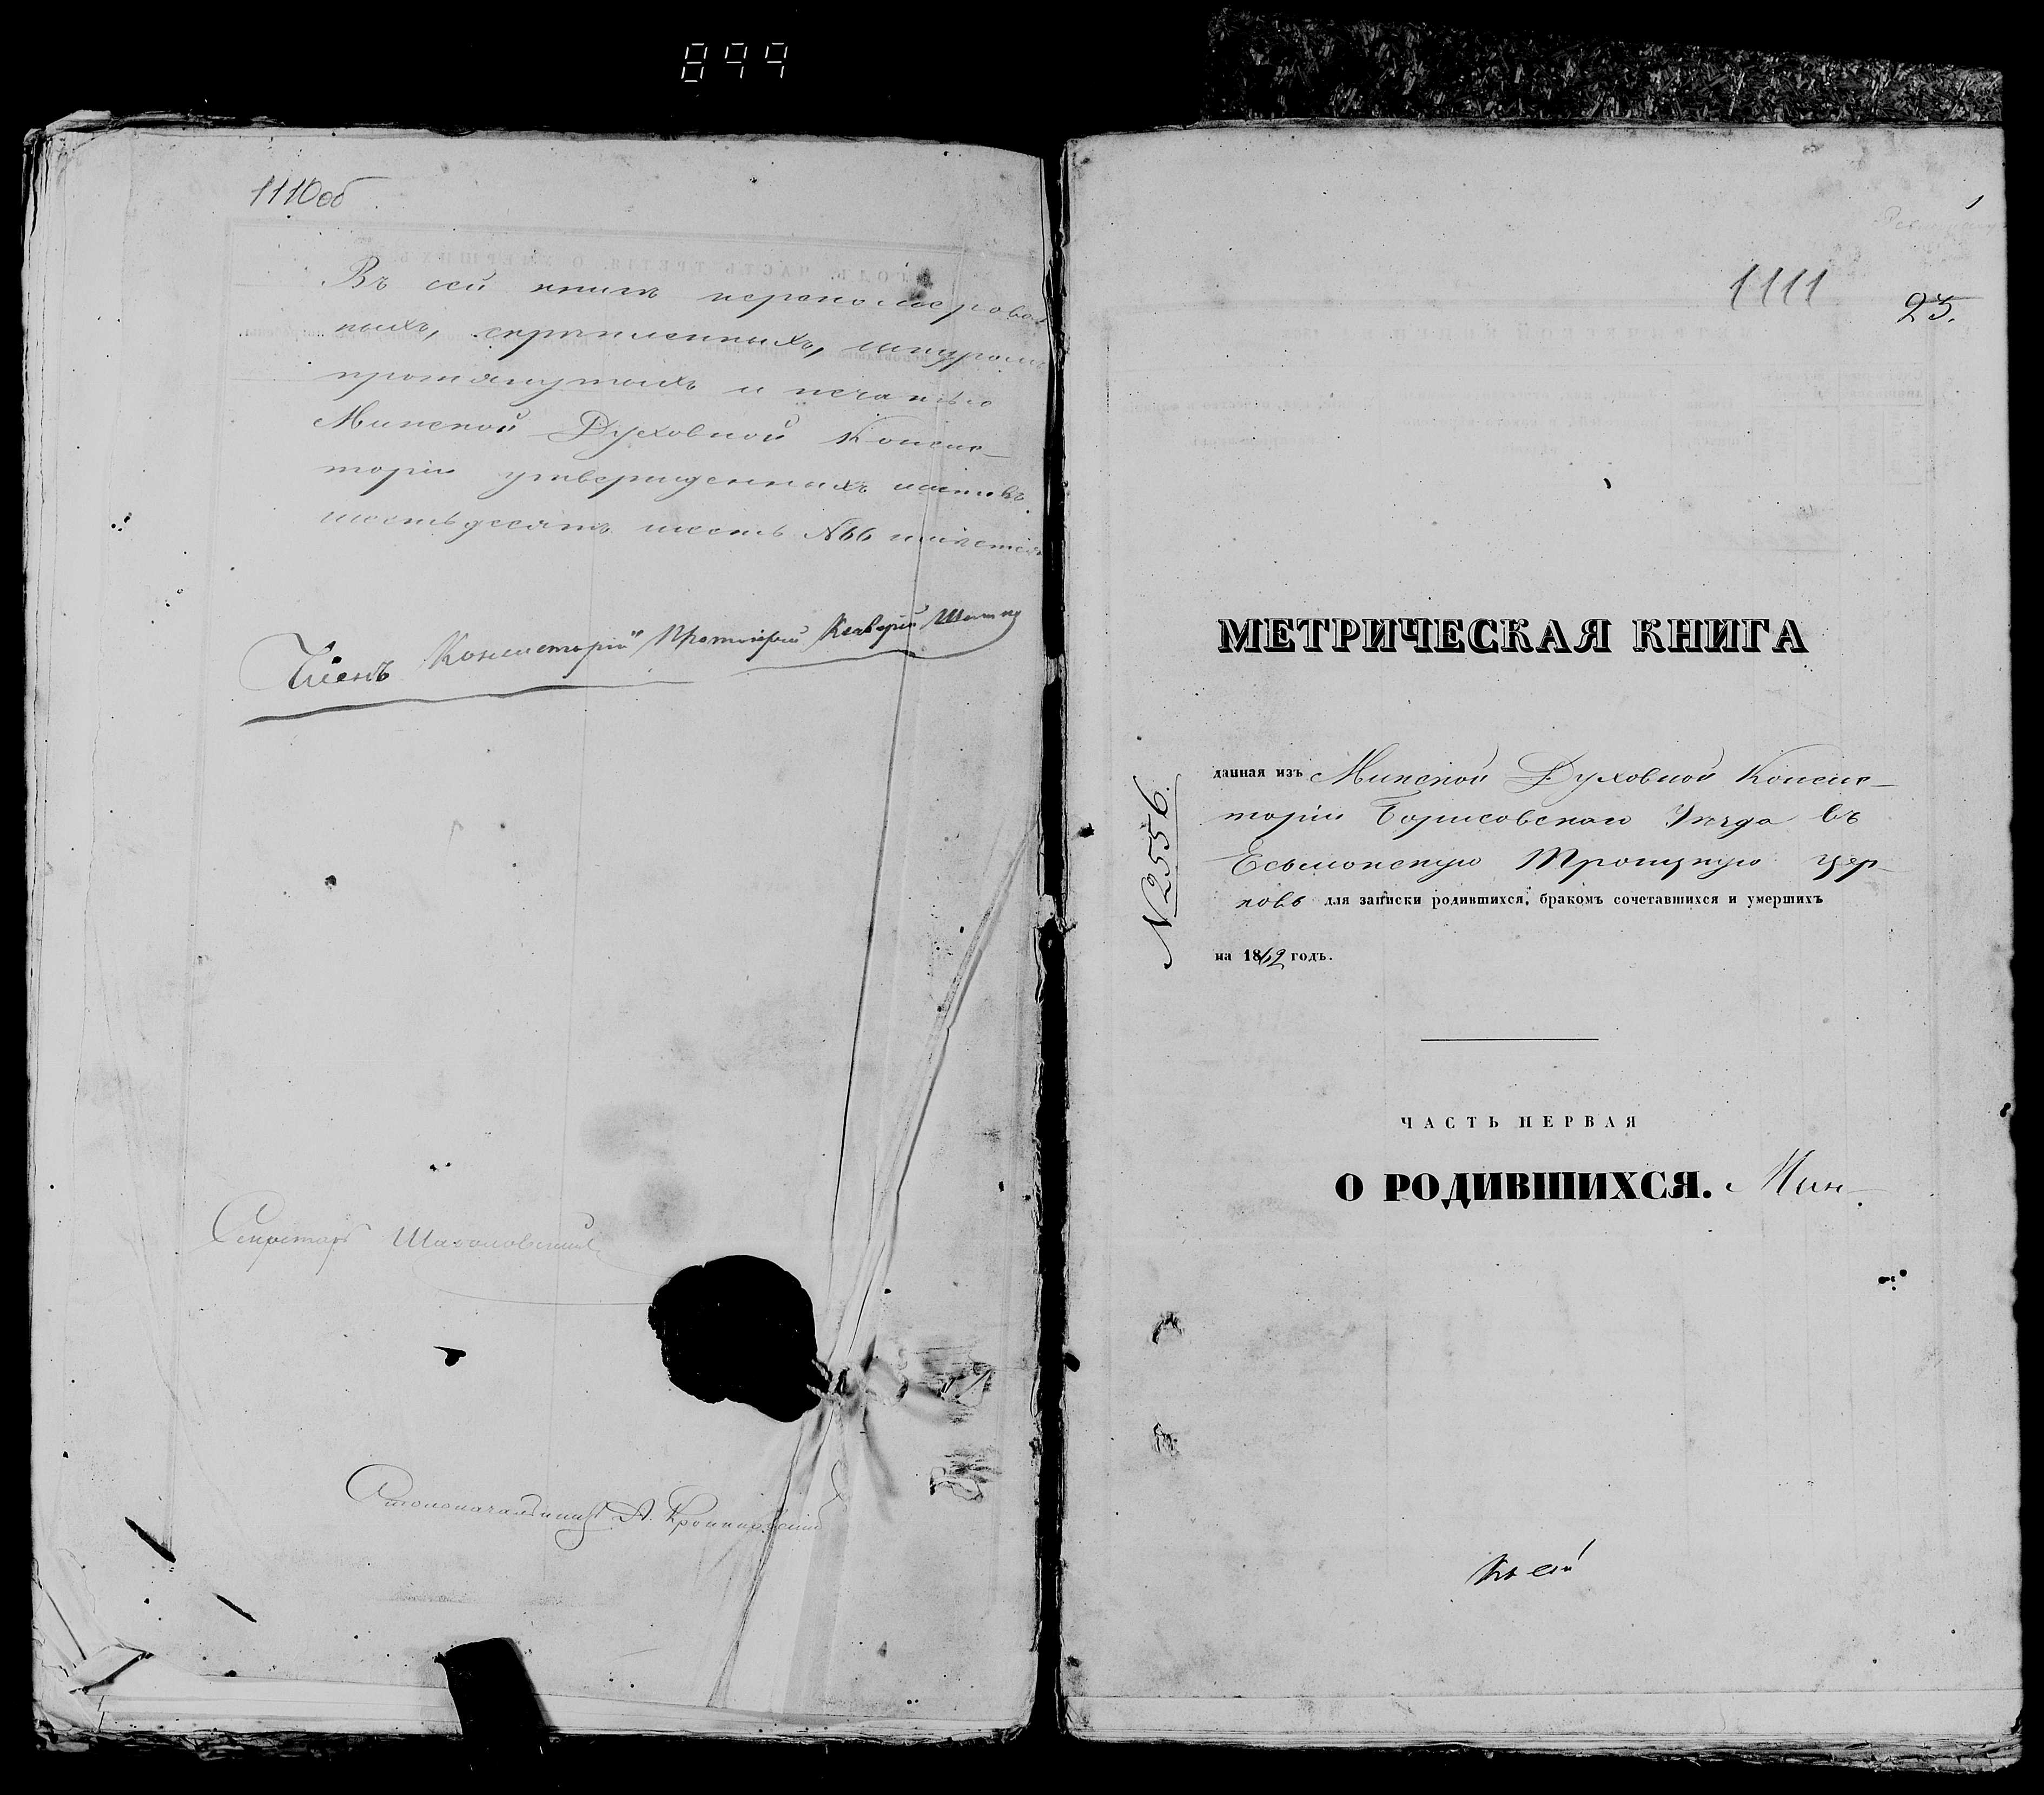 899
1110об
Въ сей книгѣ перенумерован
ныхъ, скрѣпленныхъ, шнуромъ
протянутыхъ и печатью
Минской Духовной Конси-
сторіи утвержденныхъ листовъ
шестьдесятъ шесть №66
Членъ Консисторіи Протоіерей
Секретарь
Столоначальникъ А.
1111
25.
МЕТРИЧЕСКАЯ КНИГА
№2556.
данная изъ Минской Духовной Конси-
сторіи Борисовскаго Уѣзда въ
Есьмонскую Троицкую цер-
ковь для записки родившихся, бракомъ сочетавшихся и умершихъ
на 1862 годъ.
ЧАСТЬ ПЕРВАЯ
О РОДИВШИХСЯ. Мин-